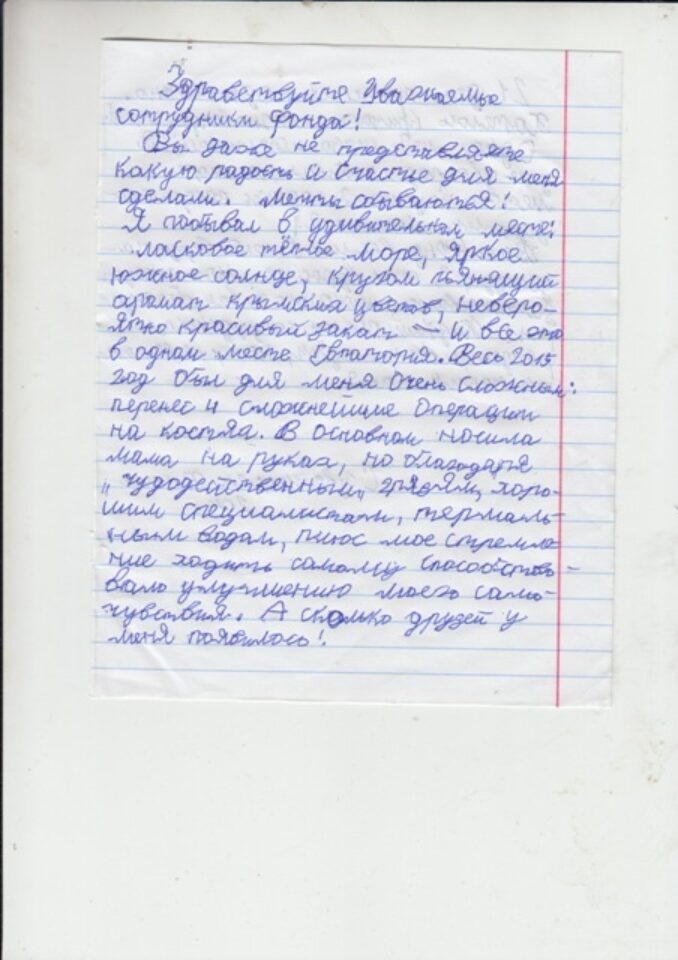 Здравствуйте Уважаемые
сотрудники фонда!
Вы даже не представляете
какую радость и счастье для меня
сделали. Мечты сбываются!
Я побывал в удивительном месте:
ласковое тёплое море, яркое
южное солнце, кругом пьянящий
аромат крымских цветов, неверо-
ятно красивый закат — и все это
в одном месте Евпатория. Весь 2015
год был для меня очень сложным:
перенес 4 сложнейшие операции
на костях. В основном носила
мама на руках, но благодаря
„чудодейственным„ грязям, хоро-
шим специалистам, термаль-
ным водам, плюс мое стремле
ние ходить самому способство-
вало улучшению моего само-
чувствия. А сколько друзей у
меня появилось!